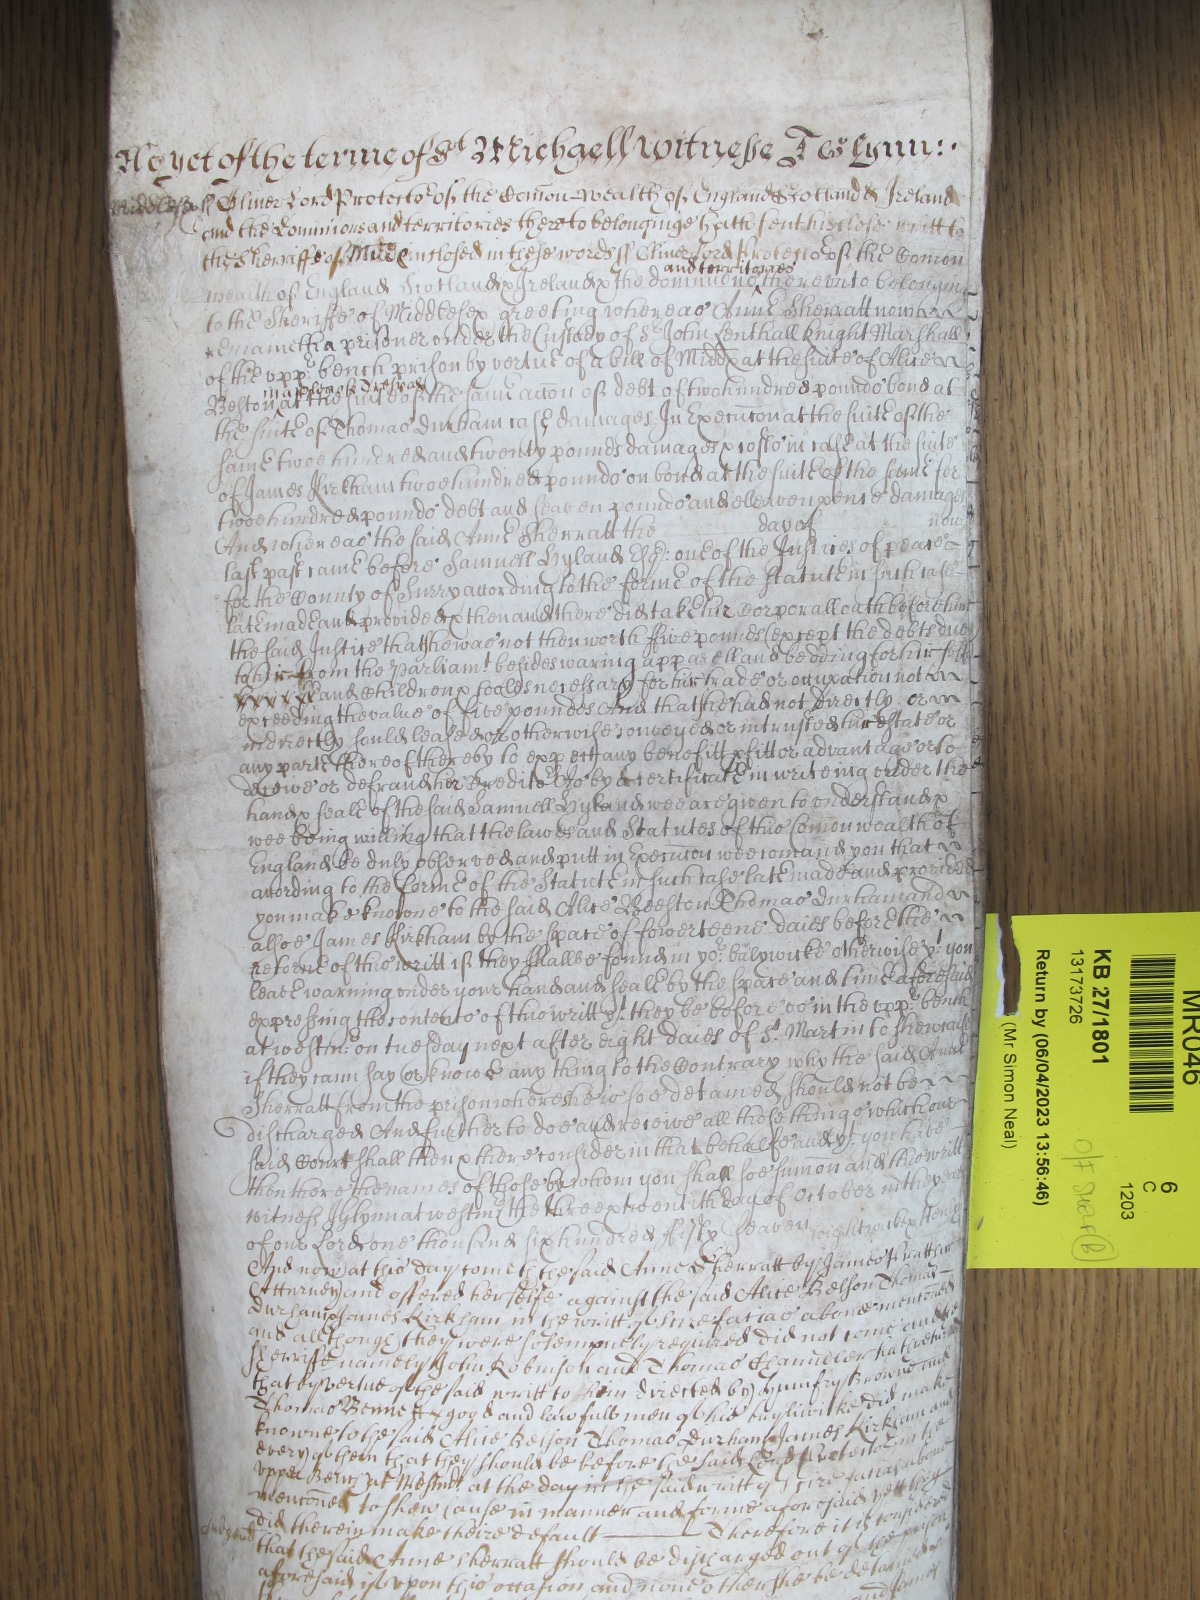 As yet of the terme of St Michaell witnesse Jo: Glynn:
Middlesex ss Oliver Lord Protector of the Comon-wealth of England Scotland & Ireland
and the Dominions and territories thereto belonginge hath sent his close writt to
the Sherriffe of Midd enclosed in these words ss Oliver Lord Protector of the Comon
and territories
wealth of England Scotland & Ireland & the dominions thereunto belonging
to the Sheriffe of Middlesex greeting whereas Anne Sherratt now
remaineth a prisoner under the Custody of Sr John Lenthall Knight Marshall
of the upp: bench prison by vertue of a bill of Midd at the suite of Alice
in a plea of trespas
Beston at the suite of the same accon of debt of two hundred pounds bond at
the suite of Thomas Durham case damages In Execucon at the suite of the
same twoe hundred and twenty pounds damages & costs in case at the suite
of James Kirkham twoe hundred pounds on bond at the suite of the same for
twoe hundred pounds debt and seaven pounds and eleaven pence damages
And whereas the said Anne Sherratt the day of now
last past came before Samuell Hyland Esq: one of the Justices of peace
for the County of Surry according to the forme of the statute in such case
late made and provided & then and there did take hir corporall oath before him
the said Justice that she was not then worth five pounds (except the debts due
to hir from the Parliamt besides waring apparell and bedding for hir selfe
and Children & tooles necessary for hir trade or occupation not
exceeding the value of five pounds And that she had not directly or
indirectly sould leased or otherwise conveyed or intrusted hir estate or
any part thereof thereby to expect any benefitt pfitt or advantage or to
deceive or defraud her Creditors As by a certificate in writeing under the
hand & seale of the said Samuell Hyland wee are given to understand &
wee being willing that the lawes and Statutes of this Comonwealth of
England be duly observed and putt in Execucon wee comand you that
according to the forme of the Statute in such case late made and provided
you make knowne to the said Alice Beeston Thomas Durham and
alsoe James Kirkham by the space of fowerteene daies before the
retorne of this writt if they shall be found in yor balywicke otherwise yt you
leave warning under your hand and seale by the space and time aforesaid
expressing the contents of this writt yt they be before us in the upp: bench
at westm: on tuesday next after eight daies of St Martin to shew cause
if they cann say or know any thing to the Contrary why the said Anne
Sherratt from the prison where she is soe detained should not be
discharged And further to doe and receive all those things which our
said Court shall then & there consider in that behalfe and yt you have
then there the names of those by whom you shall soe sumon and this writt
witness J Glynn at westm the three & twentith day of October in the yeare
of our Lord one thousand six hundred fifty seaven
And now at this day cometh the said Anne Sherratt by James
Atturney and offered her selfe against the said Alice Belson Thomas
Durham & James Kirkham in the writt of scire facias above mentioned
and although they were solempnely required did not come and the
sherriffe namely John Robinson and Thomas Chandler hath returned
that by vertue of the said writt to him directed by Humfry Browne and
Thomas Bennett good and lawfull men of his bayliwicke did make
knowne to the said Alice Belson Thomas Durham James Kirkham and
every of them that they should be before the said Lord Protector in the
upper Bench at Westmr at the day in the said writt of scire facias above
menconed to shew cause in manner and forme aforesaid yett they
did therein make theire default Therefore it is considered
Judgent
that the said Anne Sherratt should be discharged out of the prison
aforesaid if upon this occasion and none other she be detained
and James
MR046
6
C
1203
KB 27/1801
13173726
Return by (06/04/2023 13:56:46)
(Mr Simon Neal)